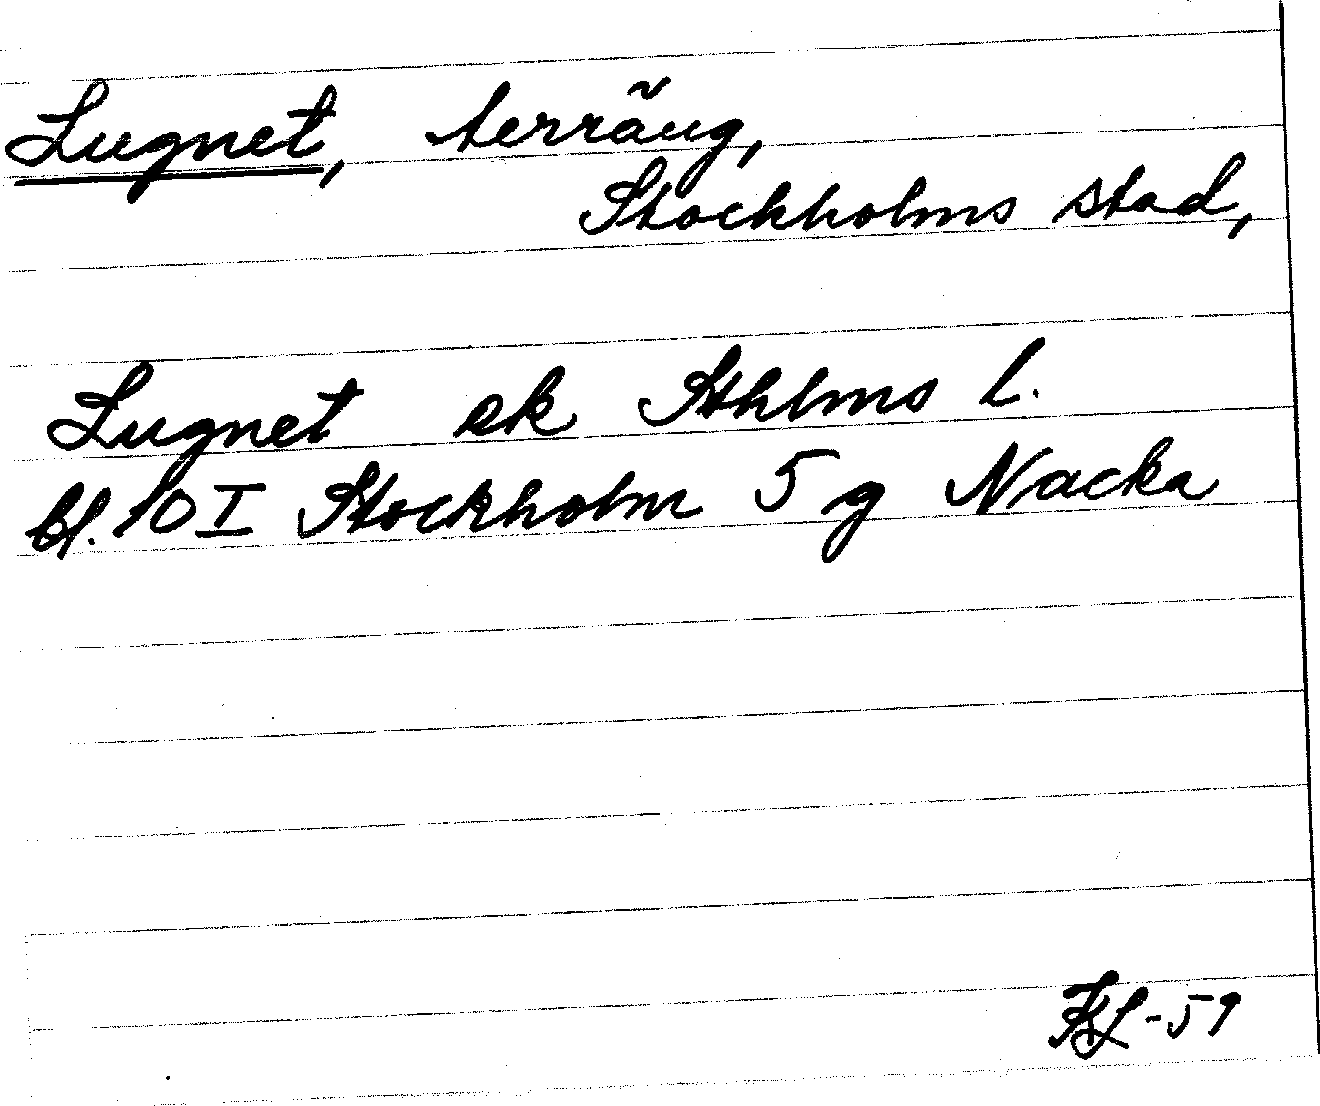 Lugnet, terräng,
Stockholms stad,
Lugnet ek Sthlms l.
bl. 10 I Stockholm 5 g Nacka
KL-59